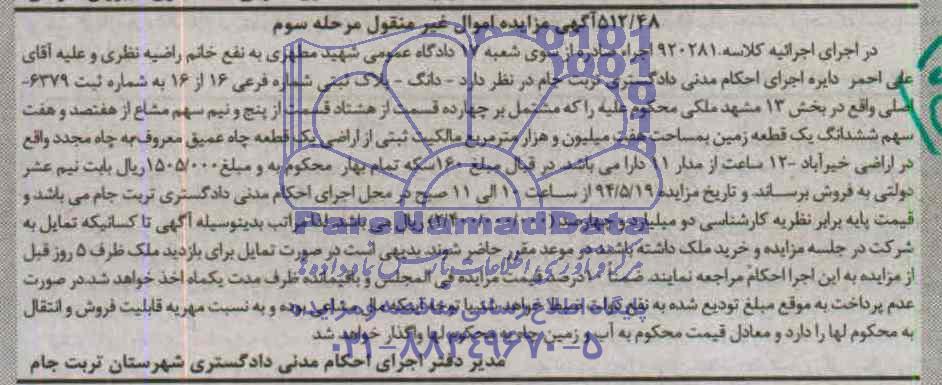 ۵۱۲/۴۸آگهی مزایده اموال غیر منقول مرحله سوم
در اجرای اجرائیه کلاسه ۹۲۰۲۸۱ اجراء صادره از سوی شعبه ۱۷ دادگاه عمومی شهید مطهری به نفع خانم راضیه نظری و علیه آقای
علی احمر دایره اجرای احکام مدنی دادگستری تربت جام در نظر دارد - دانگ - پلاک ثبتی شماره فرعی ۱۶ از ۱۶ به شماره ثبت ۶۳۷۹-
اصلی واقع در بخش ۱۳ مشهد ملکی محکوم علیه را که مشتمل بر چهارده قسمت از هشتاد قسمت از پنج و نیم سهم مشاع از هفتصد و هفت
سهم ششدانگ یک قطعه زمین بمساحت هفت میلیون و هزار متر مربع مالکیت ثبتی از اراضی یک قطعه چاه عمیق معروف به چاه مجدد واقع
در اراضی خیرآباد ۱۲- ساعت از مدار ۱۱ دارا می باشد. در قبال مبلغ ۱۶۰سکه تمام بهار محکوم به و مبلغ ۱۵۰۵/۰۰۰ریال بابت نیم عشر
دولتی به فروش برساند. و تاریخ مزایده ۹۴/۵/۱۹ از ساعت ۱۰ الی ۱۱ صبح در محل اجرای احکام مدنی دادگستری تربت جام می باشد و
قیمت پایه برابر نظریه کارشناسی دو میلیارد و چهارصد (۲/۴۰۰/۰۰۰/۰۰۰) ریال می باشد لذا مراتب بدینوسیله آگهی تا کسانیکه تمایل به
شرکت در جلسه مزایده و خرید ملک داشته باشند در موعد مقرر حاضر شوند بدیهی است در صورت تمایل برای بازدید ملک ظرف ۵ روز قبل
از مزایده به این اجرا احکام مراجعه نمایند. ضمنا ۱۰درصد قیمت مزایده فی المجلس و باقیمانده ظرف مدت یکماه اخذ خواهد شد.در صورت
عدم پرداخت به موقع مبلغ تودیع شده به نفع دولت ضبط خواهد شد با توجه اینکه مال مشاعی بوده و به نسبت مهریه قابلیت فروش و انتقال
به محکوم لها را دارد و معادل قیمت محکوم به آب و زمین جاریه محکوم لها واگذار خواهد شد
مدیر دفتر اجرای احکام مدنی دادگستری شهرستان تربت جام
ParsNamadData
۰۲۱-۸۸۳۴۹۶۷۰-۵